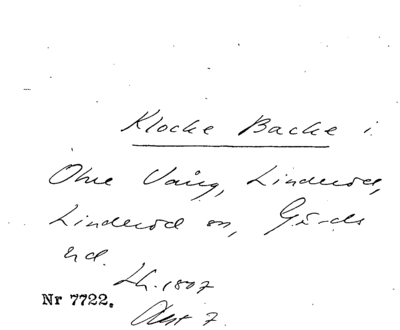 Klocke Backe i
Öhre Vång, Linderöd,
Linderöd sn, Gärds
hd.
Lh. 1807
Nr 7722.
Akt 7.